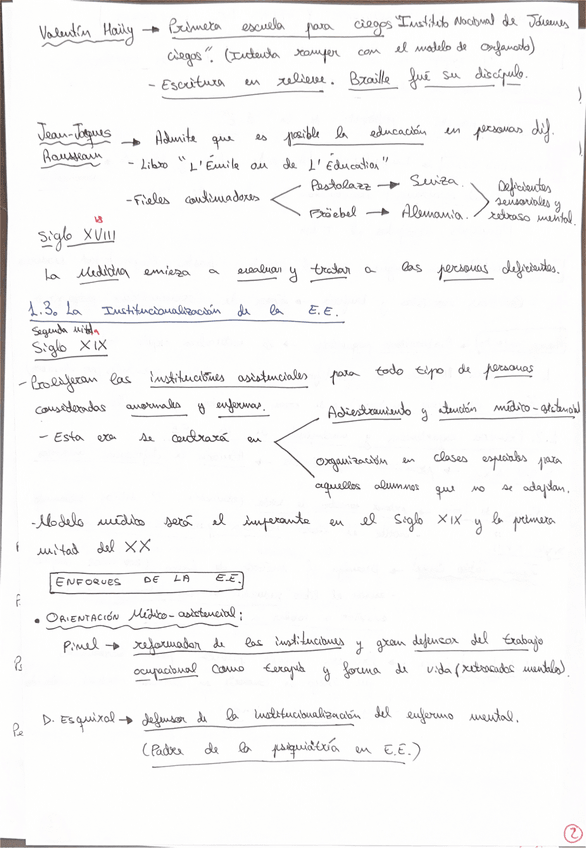 Valentín Haüy → Primera escuela para ciegos "Instituto Nacional de Jóvenes
ciegos". (Intenta romper con el modelo de orfanato)
- Escritura en relieve. Braille fué su discípulo.
Jean-Jaques Rousseau → Admite que es posible la educación en personas dif.
- Libro "L'Émile ou de L'Éducation"
- Fieles continuadores
Pestolazz → Suiza.
Fröebel → Alemania.
Deficientes
sensoriales y
retraso mental.
Siglo XVIII
La Medicina emieza a evaluar y tratar a las personas deficientes.
1.3. La Institucionalización de la E.E.
Segunda mitad
Siglo XIX
- Proliferan las instituciones asistenciales para todo tipo de personas
consideradas anormales y enfermas.
- Esta era se centrará en
Adiestramiento y atención médico-asistencial
Organización en clases especiales para
aquellos alumnos que no se adaptan.
- Modelo médico será el imperante en el Siglo XIX y la primera
mitad del XX
ENFOQUES DE LA E.E.
• ORIENTACIÓN Médico-asistencial:
Pinel → reformador de las instituciones y gran defensor del trabajo
ocupacional como terapia y forma de vida (retrasados mentales).
D. Esquirol → defensor de la institucionalización del enfermo mental.
(Padre de la psiquiatría en E.E.)
2